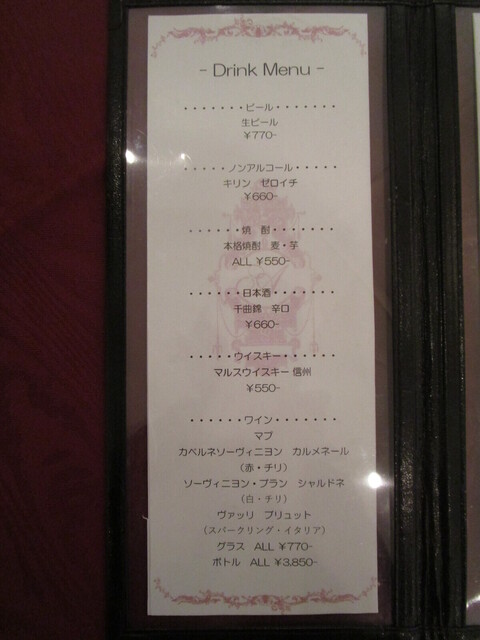 - Drink Menu -
・・・・・・・ビール・・・・・・・
生ビール
¥770-
・・・・・ノンアルコール・・・・・
キリン　ゼロイチ
¥660-
・・・・・・焼　酎・・・・・・・
本格焼酎　麦・芋
ALL ¥550-
・・・・・・日本酒・・・・・・・
千曲錦　辛口
¥660-
・・・・・ウイスキー・・・・・・
マルスウイスキー 信州
¥550-
・・・・・・ワイン・・・・・・・
マプ
カベルネソーヴィニヨン　カルメネール
（赤・チリ）
ソーヴィニヨン・ブラン　シャルドネ
（白・チリ）
ヴァッリ　ブリュット
（スパークリング・イタリア）
グラス　ALL ¥770-
ボトル　ALL ¥3,850-